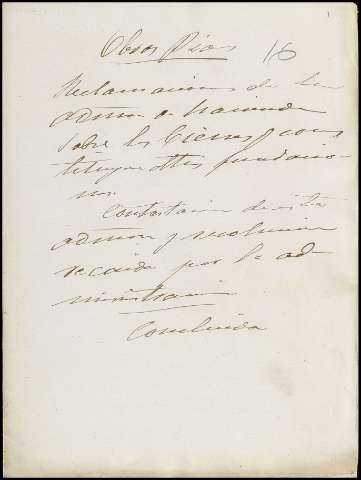 1
Obras Pias 16
Reclamaciones de la
admon de hacienda
sobre los bienes q cons
tituyen
nes
Contestacion de esta
admon y resolucion
recaida por la ad
ministracion
Concluida